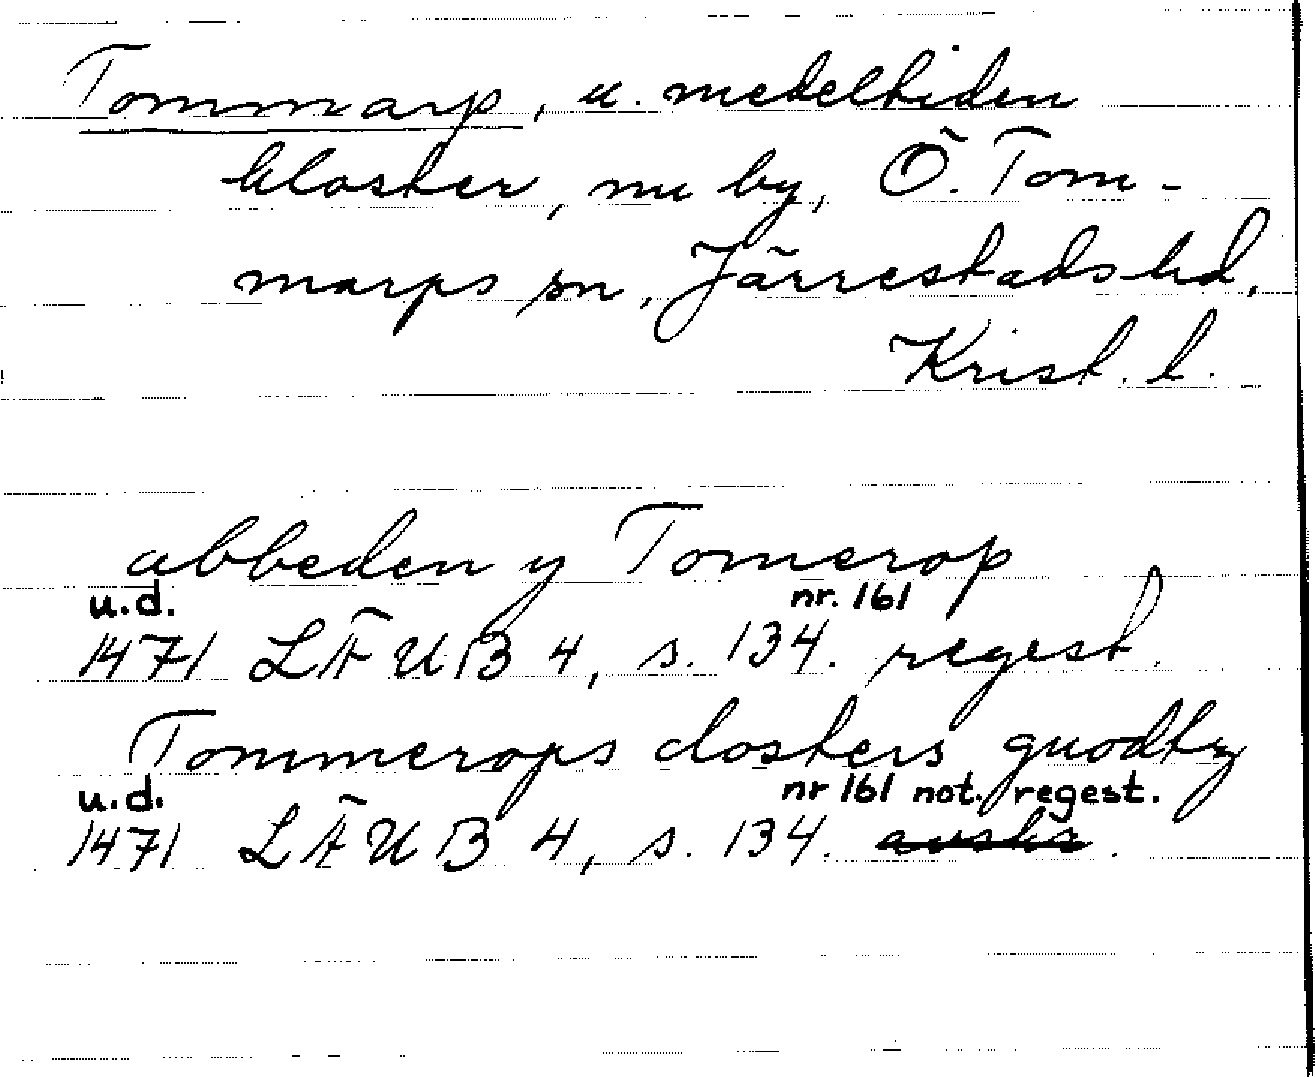 Tommarp, u. medeltiden
kloster, nu by, Ö. Tom-
marps sn, Järrestads hd,
Krist. l.
abbeden y Tomerop
u.d. nr. 161
1471 LÄUB 4, s. 134. regest.
Tommerops closters guodtz
u.d. nr 161 not. regest.
1471 LÄUB 4, s. 134.